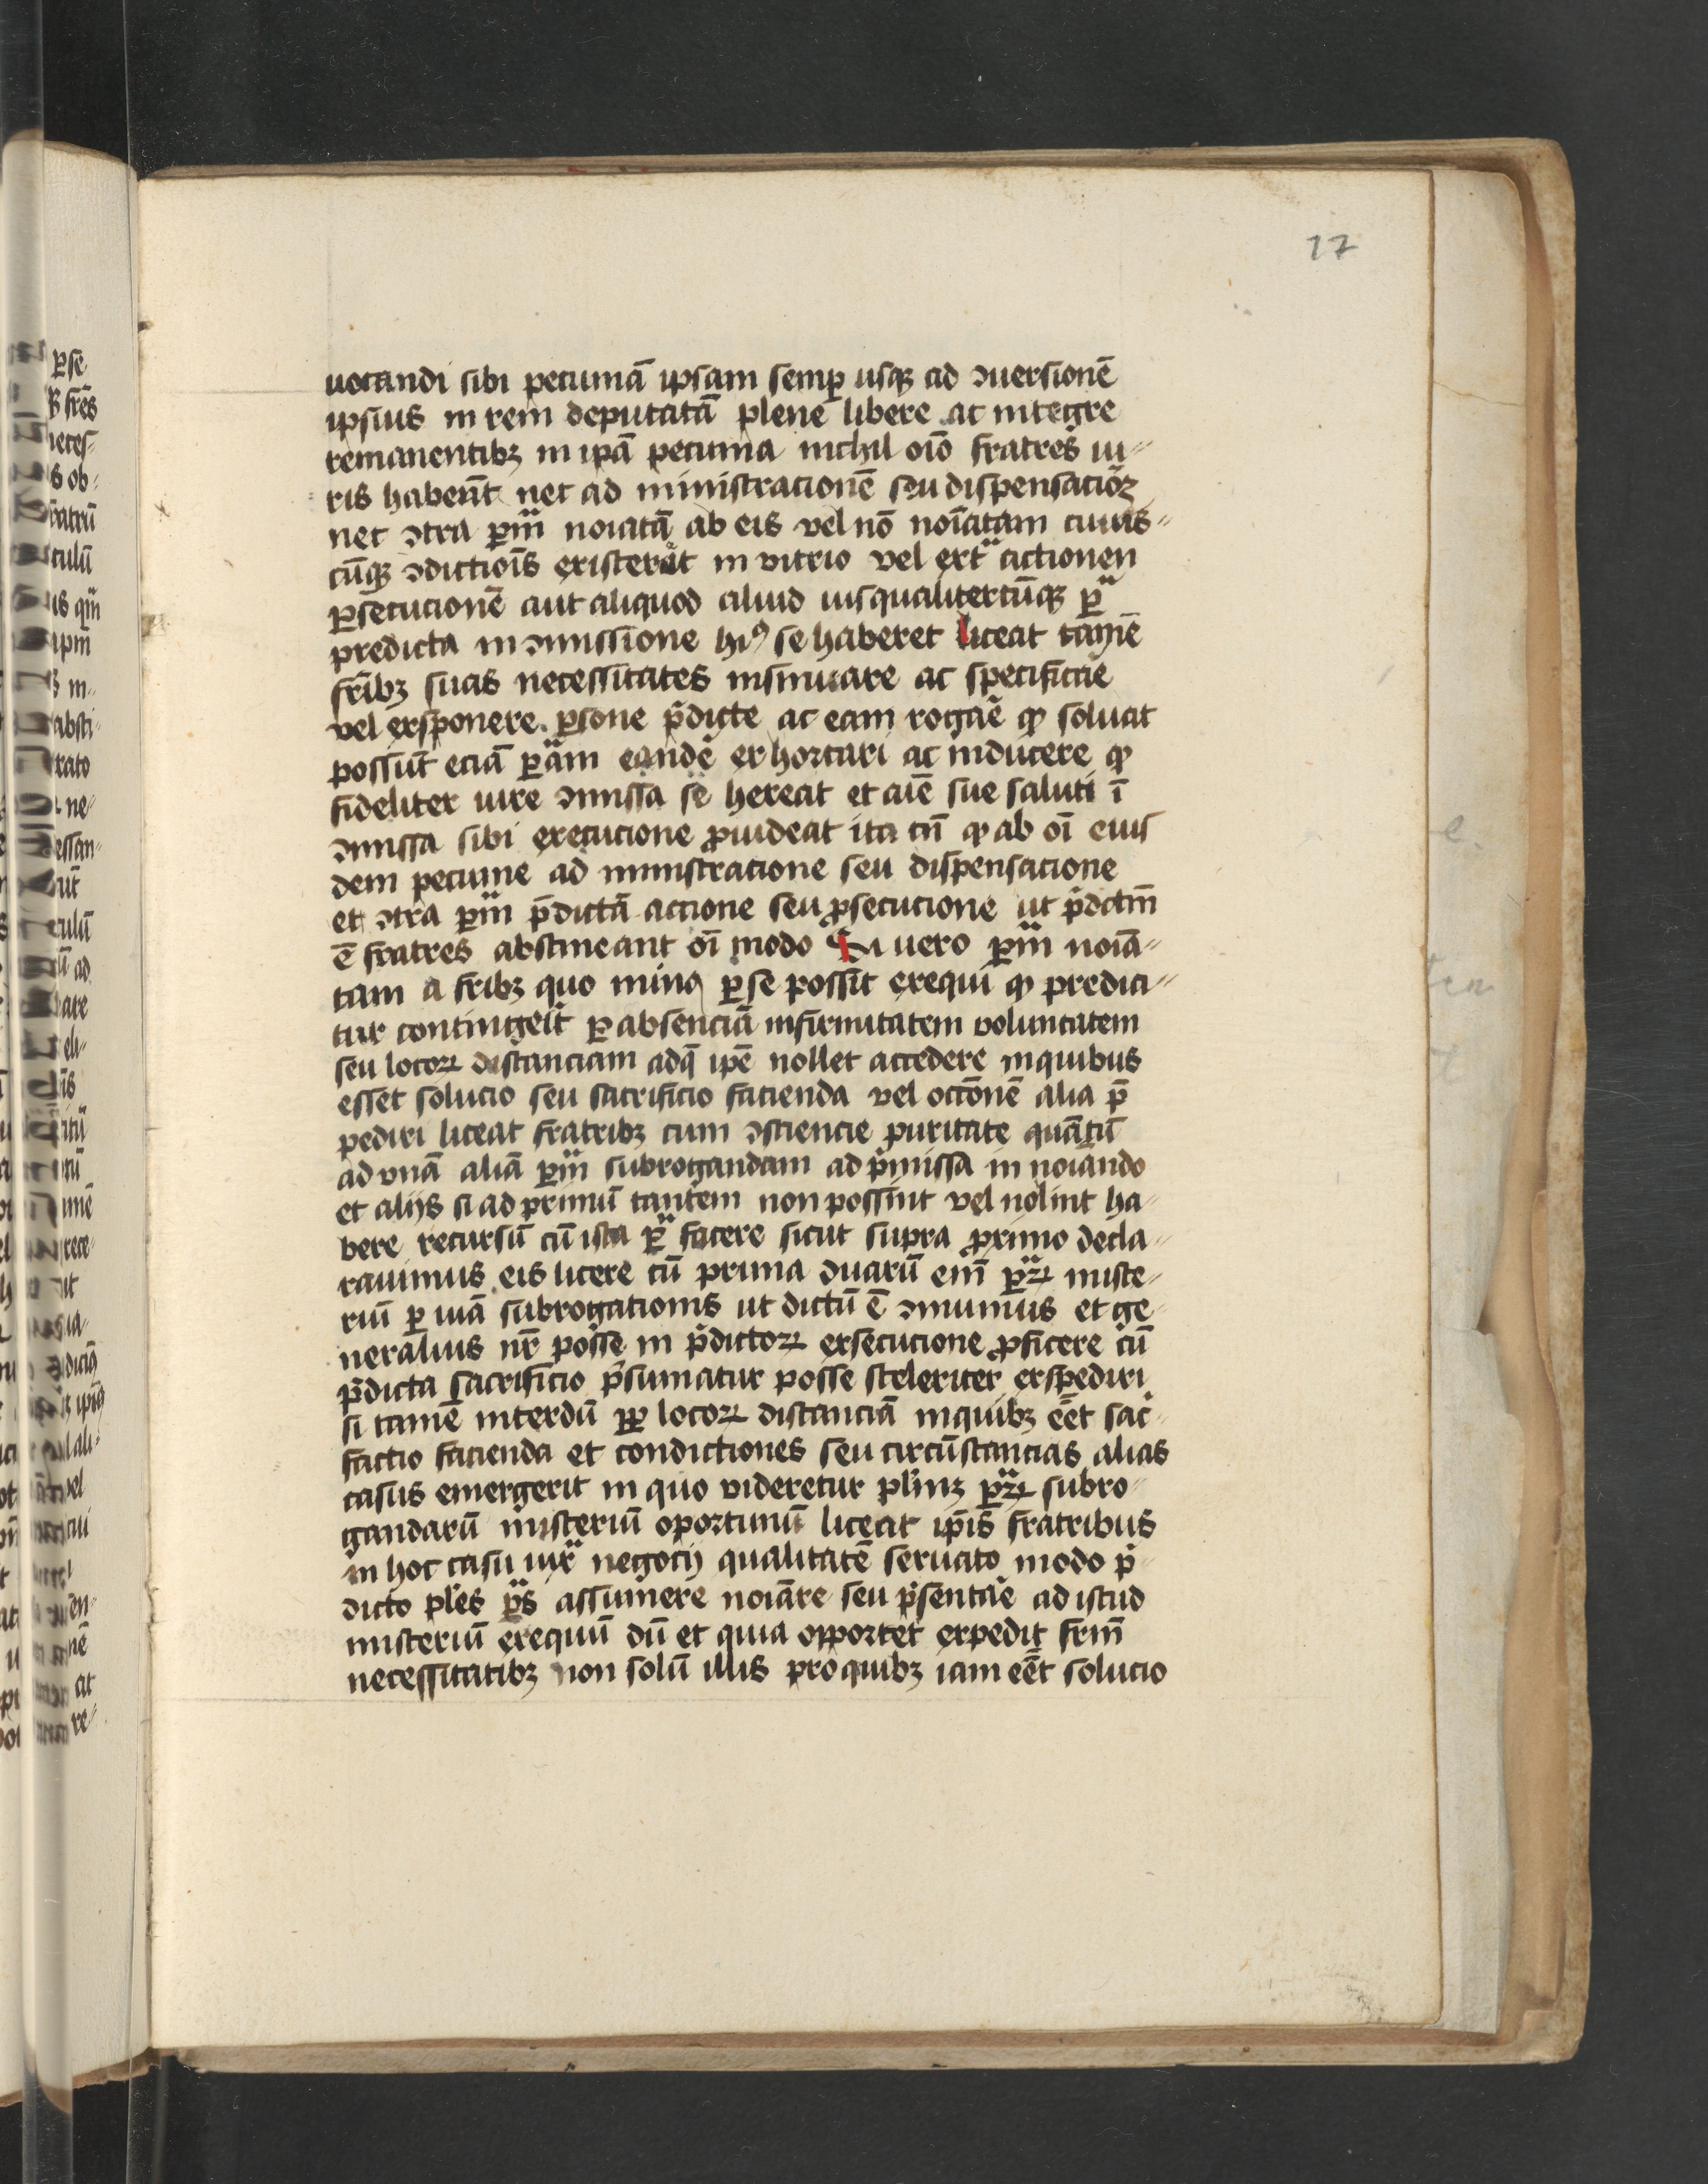 17
uocandi sibi pecuniā ipsam semꝑ usqꝫ ad ꝯuersionē
ipsius in rem deputatā plene libere ac integre
remanentibꝫ in ip̄a pecunia nichil oīo fratres iu-
ris haber̄t nec ad ministracionē seu dispensaciōꝫ
nec ꝯtra ꝑm̄ noīatā ab eis vel nō noīatam cuius-
cūqꝫ ꝯdictiōis existerāt in vitrio vel ext̄ᵃ actionen
ꝑsecucionē aut aliquod aliud ius qualitercūqꝫ ꝑᵃ
predicta in ꝯmissione hiꝰ se haberet liceat tamē
fr̄ibꝫ suas necessitates insinuare ac specificāe
vel exsponere ꝑsone p̄dicte ac eam rogāe ꝙ soluat
possūt eciā ꝑ̄am eandē exhortari ac inducere ꝙ
fideliter iu re ꝯmissa se hereat et aīe sue saluti ī
ꝯmissa sibi execucione ꝓuideat ita tn̄ ꝙ ab oī eius
dem pecunie ad ministracione seu dispensacione
et ꝯtra ꝑm̄ p̄dictā accione seu ꝓsecucione ut p̄dctm̄
ē fratres abstineant oī modo Si uero ꝑm̄ noīa-
tam a fr̄ibꝫ quo minꝰ ꝑ se possit exequi ꝙ predici-
tur contingeīt ꝑ absenciā infirmitatem voluntatem
seu locoꝝ distanciam ad q̄ ip̄e nollet accedere in quibus
esset solucio seu sacrificio facienda vel occōnē alia p̄
pediri liceat fratribꝫ cum ꝯsciencie puritate quātū
ad vnā aliā ꝑm̄ subrogandam ad p̄missa in noīando
et alijs si ad primū tantem non possint vel nolint ha-
bere recursū cū ista ꝑᵃ facere sicut supra ꝓximo decla-
rauimus eis licere cū prima duarū em̄ ꝑꝝ miste-
riū ꝑ uiā subrogationis ut dictū ē ꝯmunius et ge-
neralius nr̄ posse in p̄dictoꝝ exsecucione ꝓficere cū
p̄dicta sacrificio p̄sumatur posse sceleriter exspediri
si tamē interdū ꝓpꝉ locoꝝ distanciā in quibꝫ eēt sac-
factio facienda et condictiones seu circūstancias alias
casus emergerit in quo videretur pl̄inꝫ ꝑꝝ subro-
gandarū misteriū oportunū liceat ip̄is fratribus
in hoc casu iuxᵃ negocij qualitatē seruato modo p̄
dicto pl̄es ꝑᵃs assumere noīare seu p̄sentāe ad istud
misteriū exequū dū et quia oportet expedit fr̄m̄
necessitatibꝫ non solū illis pro quibꝫ iam eēt solucio